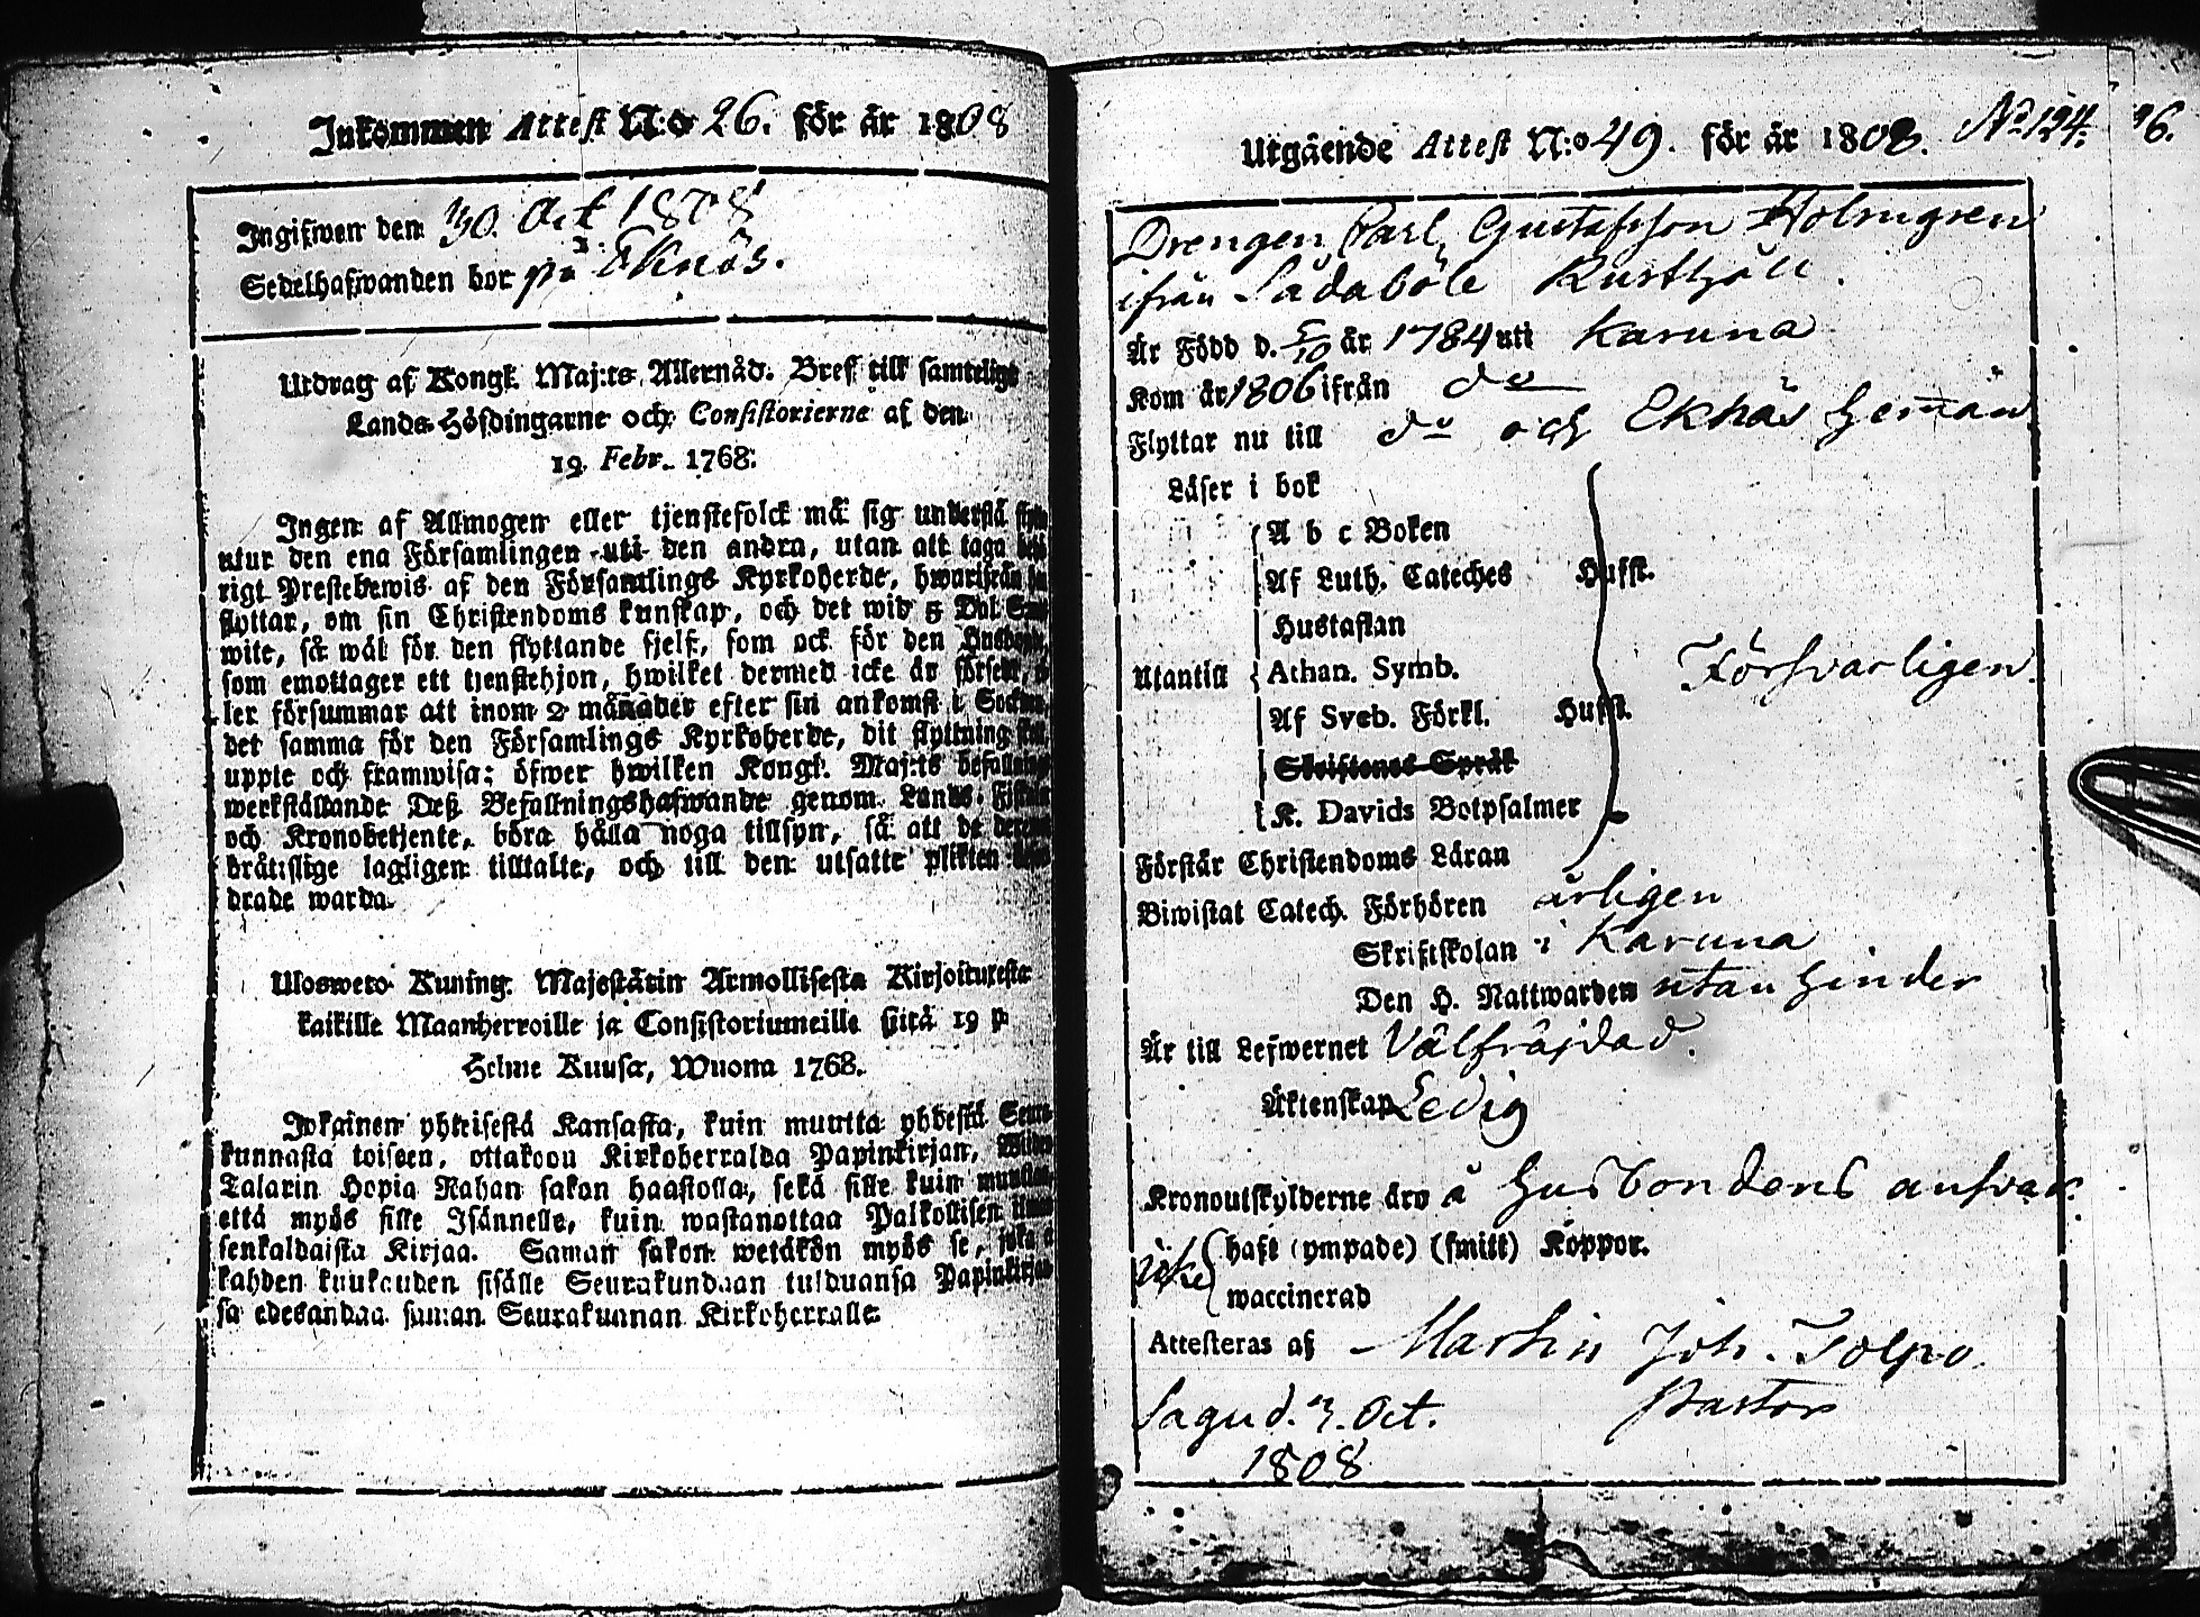 Inkommen Attest N:o 26. för år 1808
Ingifwen den 30. Oct 1808
Sedelhafwanden bor på Eknäs.
Utdrag af Kongl. Maj:ts Allernåd. Bref till samtelige
Lands-Höfdingarne och Consistorierne af den
19. Febr. 1768.
Ingen af Allmogen eller tjenstefolck må sig understå
utur den ena Församlingen uti den andra, utan att taga
rigt Prestebewis af den Församlings Kyrkoherde, hwarifrån
flyttar, om sin Christendoms kunskap, och det wid 5 Dal.
wite, så wäl för den flyttande sjelf, som ock för den
som emottager ett tjenstehjon, hwilket dermed icke är försedt,
ler försummar att inom 2 månader efter sin ankomst i
det samma för den Församlings Kyrkoherde, dit flyttning
uppte och framwisa: öfwer hwilken Kongl. Maj:ts befallning
werkställande Deß Befallningshafwande genom Lands-
och Kronobetjente, böra hålla noga tillsyn, så att de
bråtislige lagligen tilltalte, och till den utsatte plikten
drade warda.
Ulosweto Kuning. Majestätin Armollisesta Kirjoituxesta
kaikille Maanherroille ja Consistoriumeille siitä 19 p.
Helme Kuusa, Wuonna 1768.
Jokainen yhteisestä Kansasta, kuin muutta yhdestä
kunnasta toiseen, ottakoon Kirkoherralda Papinkirjan,
Talarin Hopia Rahan sakon haastolla, sekä sille kuin
että myös sille Isännelle, kuin wastanottaa Palkollisen
senkaldaista Kirjaa. Saman sakon wetäkön myös se, joka
kahden kuukauden sisälle Seurakundaan tulduansa
sa edesandaa saman Seurakunnan Kirkoherralle.
Utgående Attest N:o 49. för år 1808. No 124. 
Drengen Carl Gustafsson Holmgren
ifrån Sådaböle Rusthåll.
Är Född d. 5/10 år 1784 uti Karuna
Kom år 1806 ifrån do
Flyttar nu till do och Eknäs heman
Läser i bok
A b c Boken
Af Luth. Cateches Husfl.
Hustaflan
Utantill Athan. Symb. Försvarligen
Af Sveb. Förkl. Husfl.
Skriftenes Språk
K. Davids Botpsalmer
Förstår Christendoms Läran
Biwistat Catech. Förhören årligen
Skriftskolan i Karuna
Den H. Nattwarden utan hinder
Är till Lefwernet Välfräjdad.
Äktenskap Ledig
Kronoutskylderne äro å husbondens ansvar.
icke haft (ympade) (smitt) Koppor.
waccinerad
Attesteras af Martin Joh. Tolpo.
Sagu d. 3. Oct. Pastor
1808